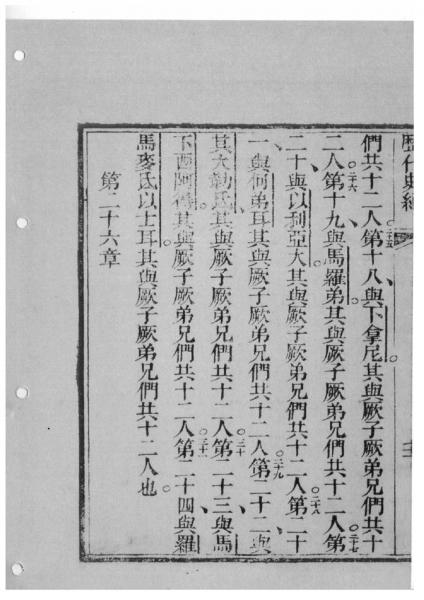 歷代史經
們共十二人。○二五第十八與下拿尼其與厥子厥弟兄們共十
二人。○二六第十九與馬羅弟其與厥子厥弟兄們共十二人。○二七第
二十與以利亞大其與厥子厥弟兄們共十二人。○二八第二十
一與何弟耳其與厥子厥弟兄們共十二人。○二九第二十二與
其大勒氐其與厥子厥弟兄們共十二人。○三十第二十三與馬
下西阿德其與厥子厥弟兄們共十二人。○三一第二十四與羅
馬麥氐以士耳其與厥子厥弟兄們共十二人也。
第二十六章